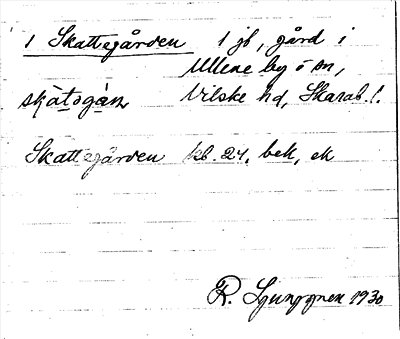 1 Skattegården 1 jb, gård i
Ullene by o sn,
skàtəgàn Vilske hd, Skarab. l.
Skattegården kb. 24. bek, ek
R. Ljunggren 1930